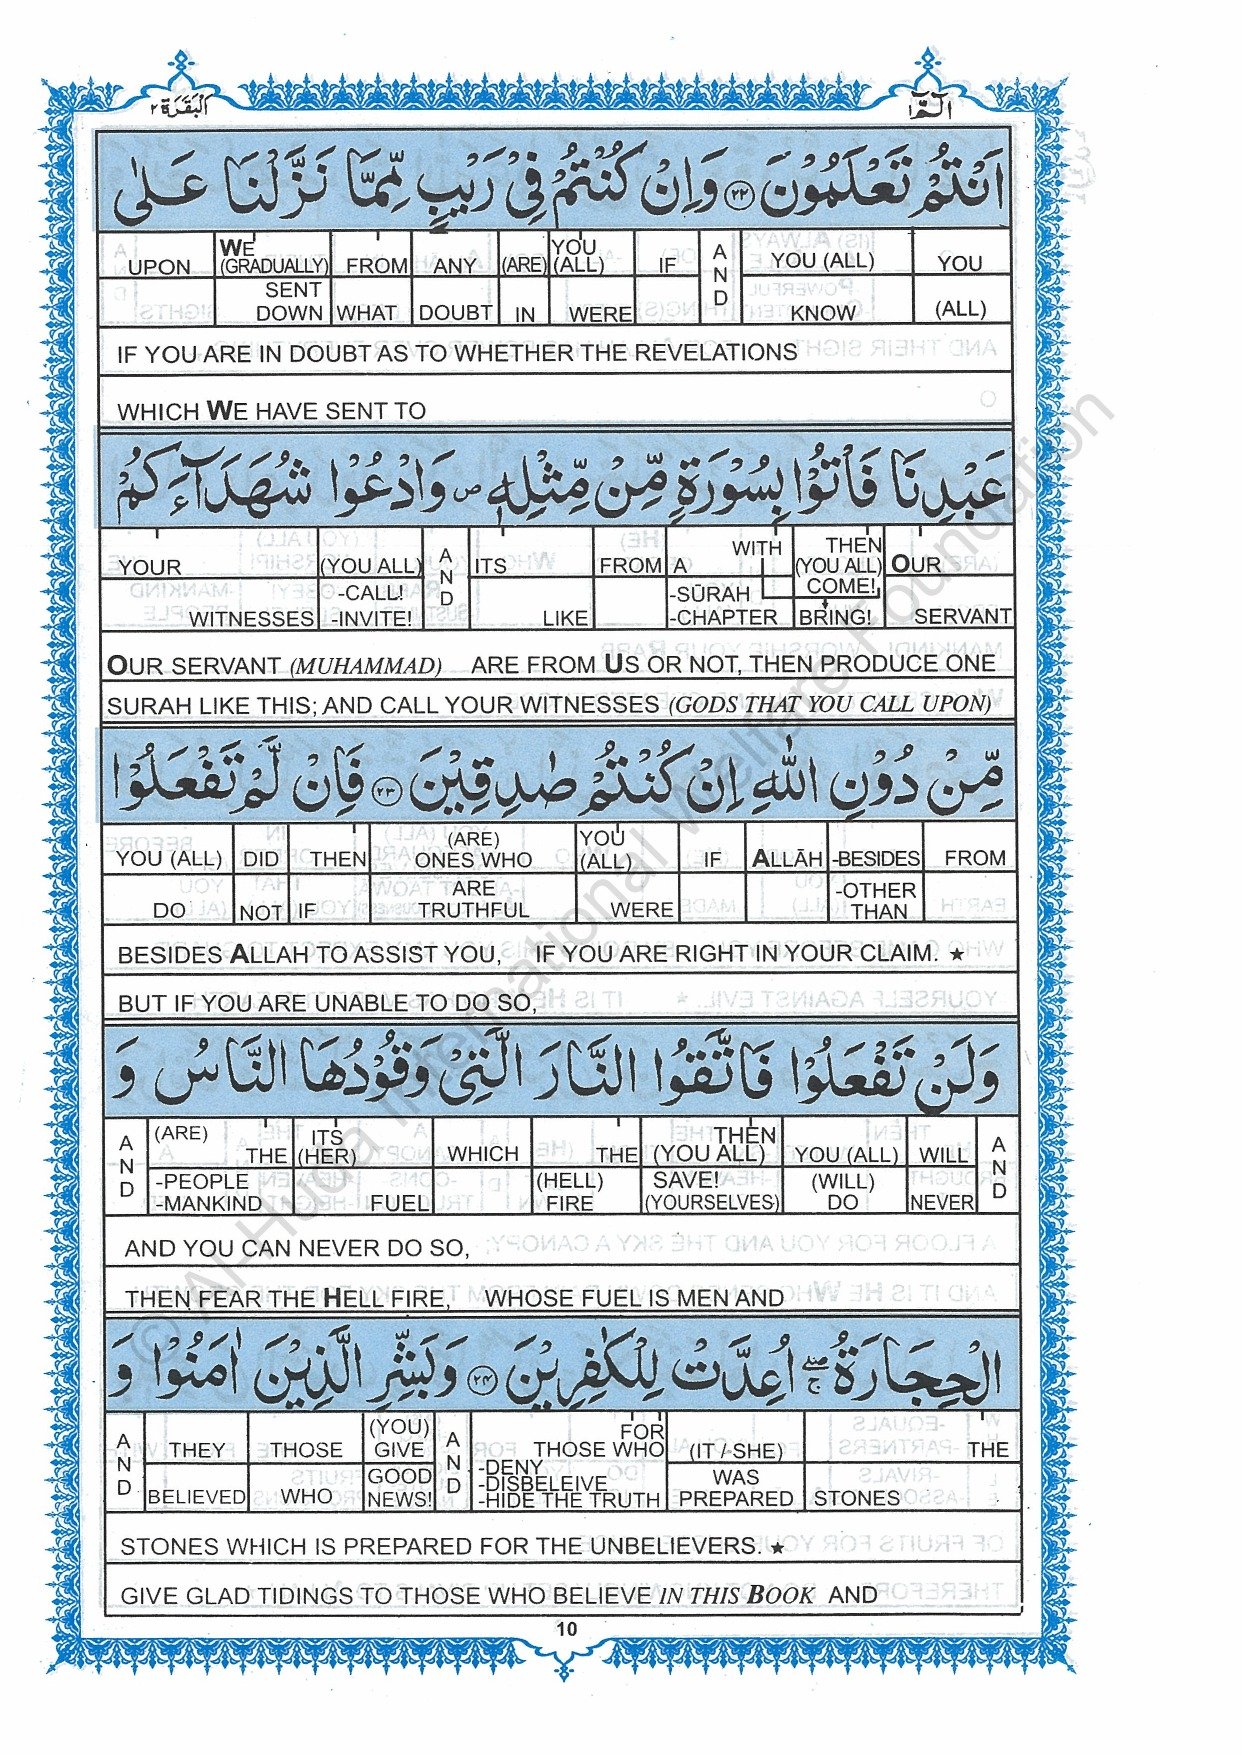 البقرة ٢
الٓمّٓ ١
اَنْتُمْ تَعْلَمُوْنَ ﴿٢٢﴾ وَاِنْ كُنْتُمْ فِيْ رَيْبٍ مِّمَّا نَزَّلْنَا عَلٰى
UPON WE (GRADUALLY) SENT DOWN FROM WHAT ANY DOUBT (ARE) IN YOU (ALL) WERE IF AND YOU (ALL) KNOW YOU (ALL)
IF YOU ARE IN DOUBT AS TO WHETHER THE REVELATIONS
WHICH WE HAVE SENT TO
عَبْدِنَا فَاْتُوْا بِسُوْرَةٍ مِّنْ مِّثْلِهٖ ص وَادْعُوْا شُهَدَآءَكُمْ
YOUR WITNESSES (YOU ALL) -CALL! -INVITE! AND ITS LIKE FROM WITH A -SŪRAH -CHAPTER THEN (YOU ALL) COME! BRING! OUR SERVANT
OUR SERVANT (MUHAMMAD) ARE FROM US OR NOT, THEN PRODUCE ONE
SURAH LIKE THIS; AND CALL YOUR WITNESSES (GODS THAT YOU CALL UPON)
مِّنْ دُوْنِ اللّٰهِ اِنْ كُنْتُمْ صٰدِقِيْنَ ﴿٢٣﴾ فَاِنْ لَّمْ تَفْعَلُوْا
YOU (ALL) DO DID NOT THEN IF (ARE) ONES WHO ARE TRUTHFUL YOU (ALL) WERE IF ALLĀH -BESIDES -OTHER THAN FROM
BESIDES ALLAH TO ASSIST YOU, IF YOU ARE RIGHT IN YOUR CLAIM. ★
BUT IF YOU ARE UNABLE TO DO SO,
وَلَنْ تَفْعَلُوْا فَاتَّقُوا النَّارَ الَّتِيْ وَقُوْدُهَا النَّاسُ وَ
AND (ARE) THE -PEOPLE -MANKIND ITS (HER) FUEL WHICH THE (HELL) FIRE THEN (YOU ALL) SAVE! (YOURSELVES) YOU (ALL) (WILL) DO WILL NEVER AND
AND YOU CAN NEVER DO SO,
THEN FEAR THE HELL FIRE, WHOSE FUEL IS MEN AND
الْحِجَارَةُ صلے ج اُعِدَّتْ لِلْكٰفِرِيْنَ ﴿٢٤﴾ وَبَشِّرِ الَّذِيْنَ اٰمَنُوْا وَ
AND THEY BELIEVED THOSE WHO (YOU) GIVE GOOD NEWS! AND FOR THOSE WHO -DENY -DISBELEIVE -HIDE THE TRUTH (IT /-SHE) WAS PREPARED THE STONES
STONES WHICH IS PREPARED FOR THE UNBELIEVERS. ★
GIVE GLAD TIDINGS TO THOSE WHO BELIEVE IN THIS BOOK AND
10
© Al-Huda International Welfare Foundation